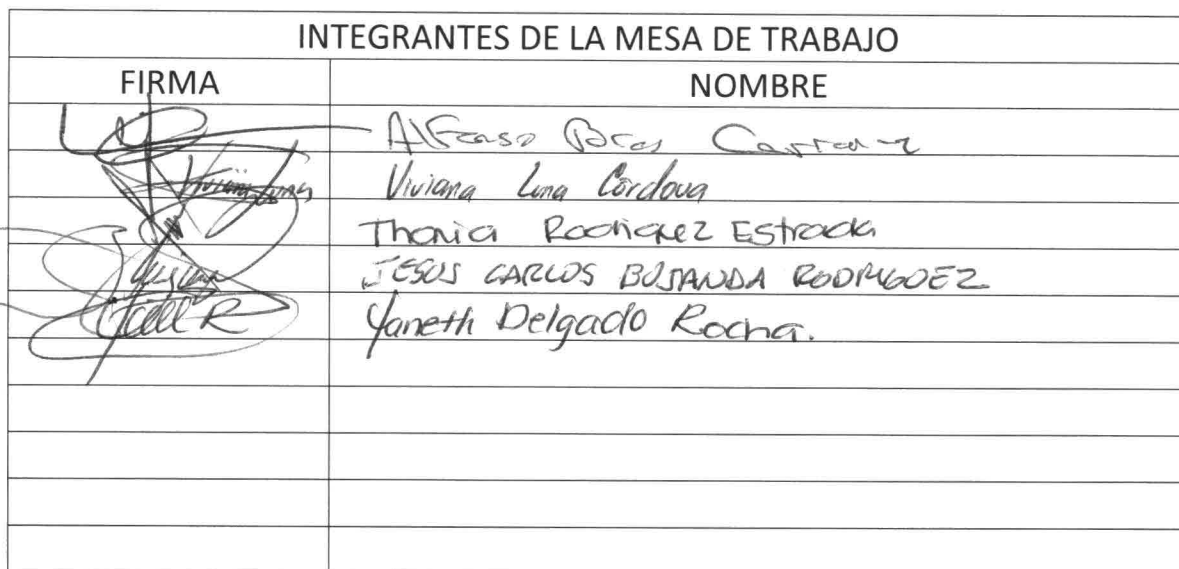 INTEGRANTES DE LA MESA DE TRABAJO
FIRMA NOMBRE
Alfonso
Viviana Luna Viviana Luna Córdova
Thania Rodriguez Estrada
JESUS CARLOS BUJANDA RODRIGUEZ
Yaneth Delgado Rocha.